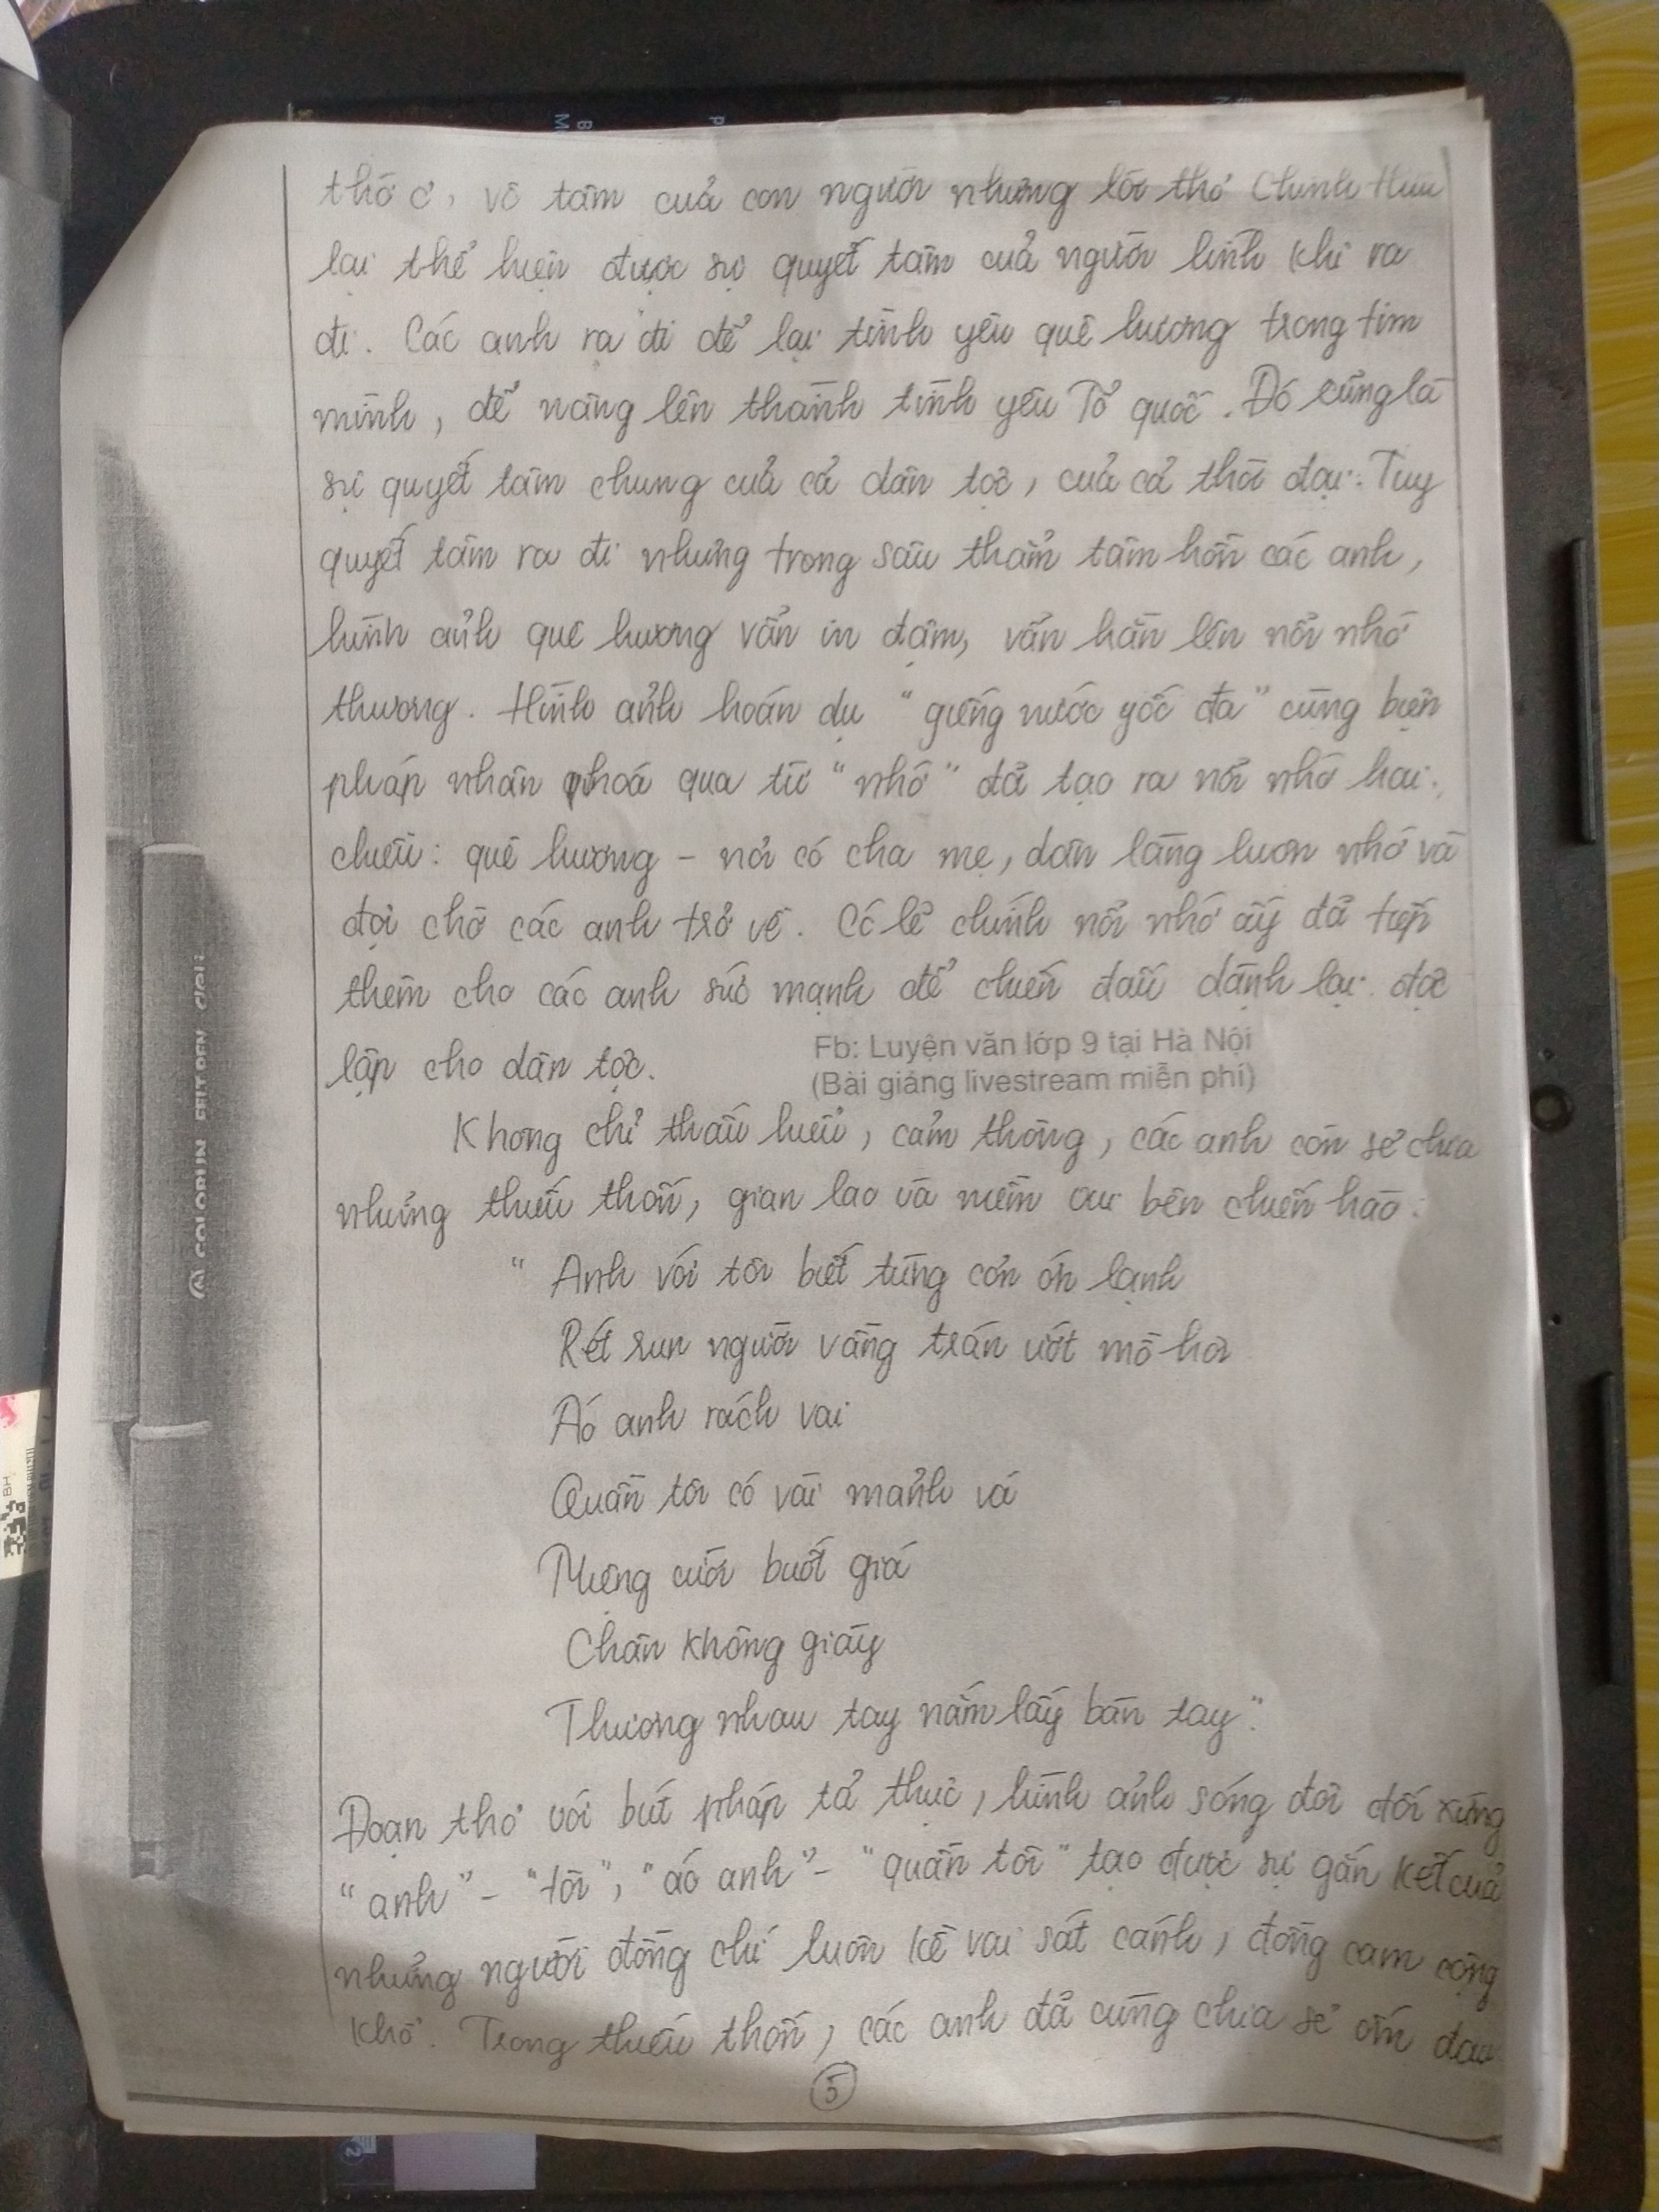 thờ ơ, vô tâm của con người nhưng lời thơ Chính Hữu
lại thể hiện được sự quyết tâm của người lính khi ra
đi. Các anh ra đi để lại tình yêu quê hương trong tim
mình, để nâng lên thành tình yêu Tổ quốc. Đó cũng là
sự quyết tâm chung của cả dân tộc, của cả thời đại. Tuy
quyết tâm ra đi nhưng trong sâu thẳm tâm hồn các anh,
hình ảnh quê hương vẫn in đậm, vẫn hằn lên nỗi nhớ
thương. Hình ảnh hoán dụ "giếng nước gốc đa" cùng biện
pháp nhân hoá qua từ "nhớ" đã tạo ra nỗi nhớ hai
chiều: quê hương - nơi có cha mẹ, dân làng luôn nhớ và
đợi chờ các anh trở về. Có lẽ chính nỗi nhớ ấy đã tiếp
thêm cho các anh sức mạnh để chiến đấu dành lại độc
lập cho dân tộc.
Fb: Luyện văn lớp 9 tại Hà Nội
(Bài giảng livestream miễn phí)
Không chỉ thấu hiểu, cảm thông, các anh còn sẻ chia
những thiếu thốn, gian lao và niềm vui bên chiến hào:
"Anh với tôi biết từng cơn ớn lạnh
Rét run người vầng trán ướt mồ hôi
Áo anh rách vai
Quần tôi có vài mảnh vá
Miệng cười buốt giá
Chân không giày
Thương nhau tay nắm lấy bàn tay".
Đoạn thơ với bút pháp tả thực, hình ảnh sóng đôi đối xứng
"anh" - "tôi", "áo anh" - "quần tôi" tạo được sự gắn kết của
những người đồng chí luôn kề vai sát cánh, đồng cam cộng
khổ. Trong thiếu thốn, các anh đã cùng chia sẻ ốm đau
5